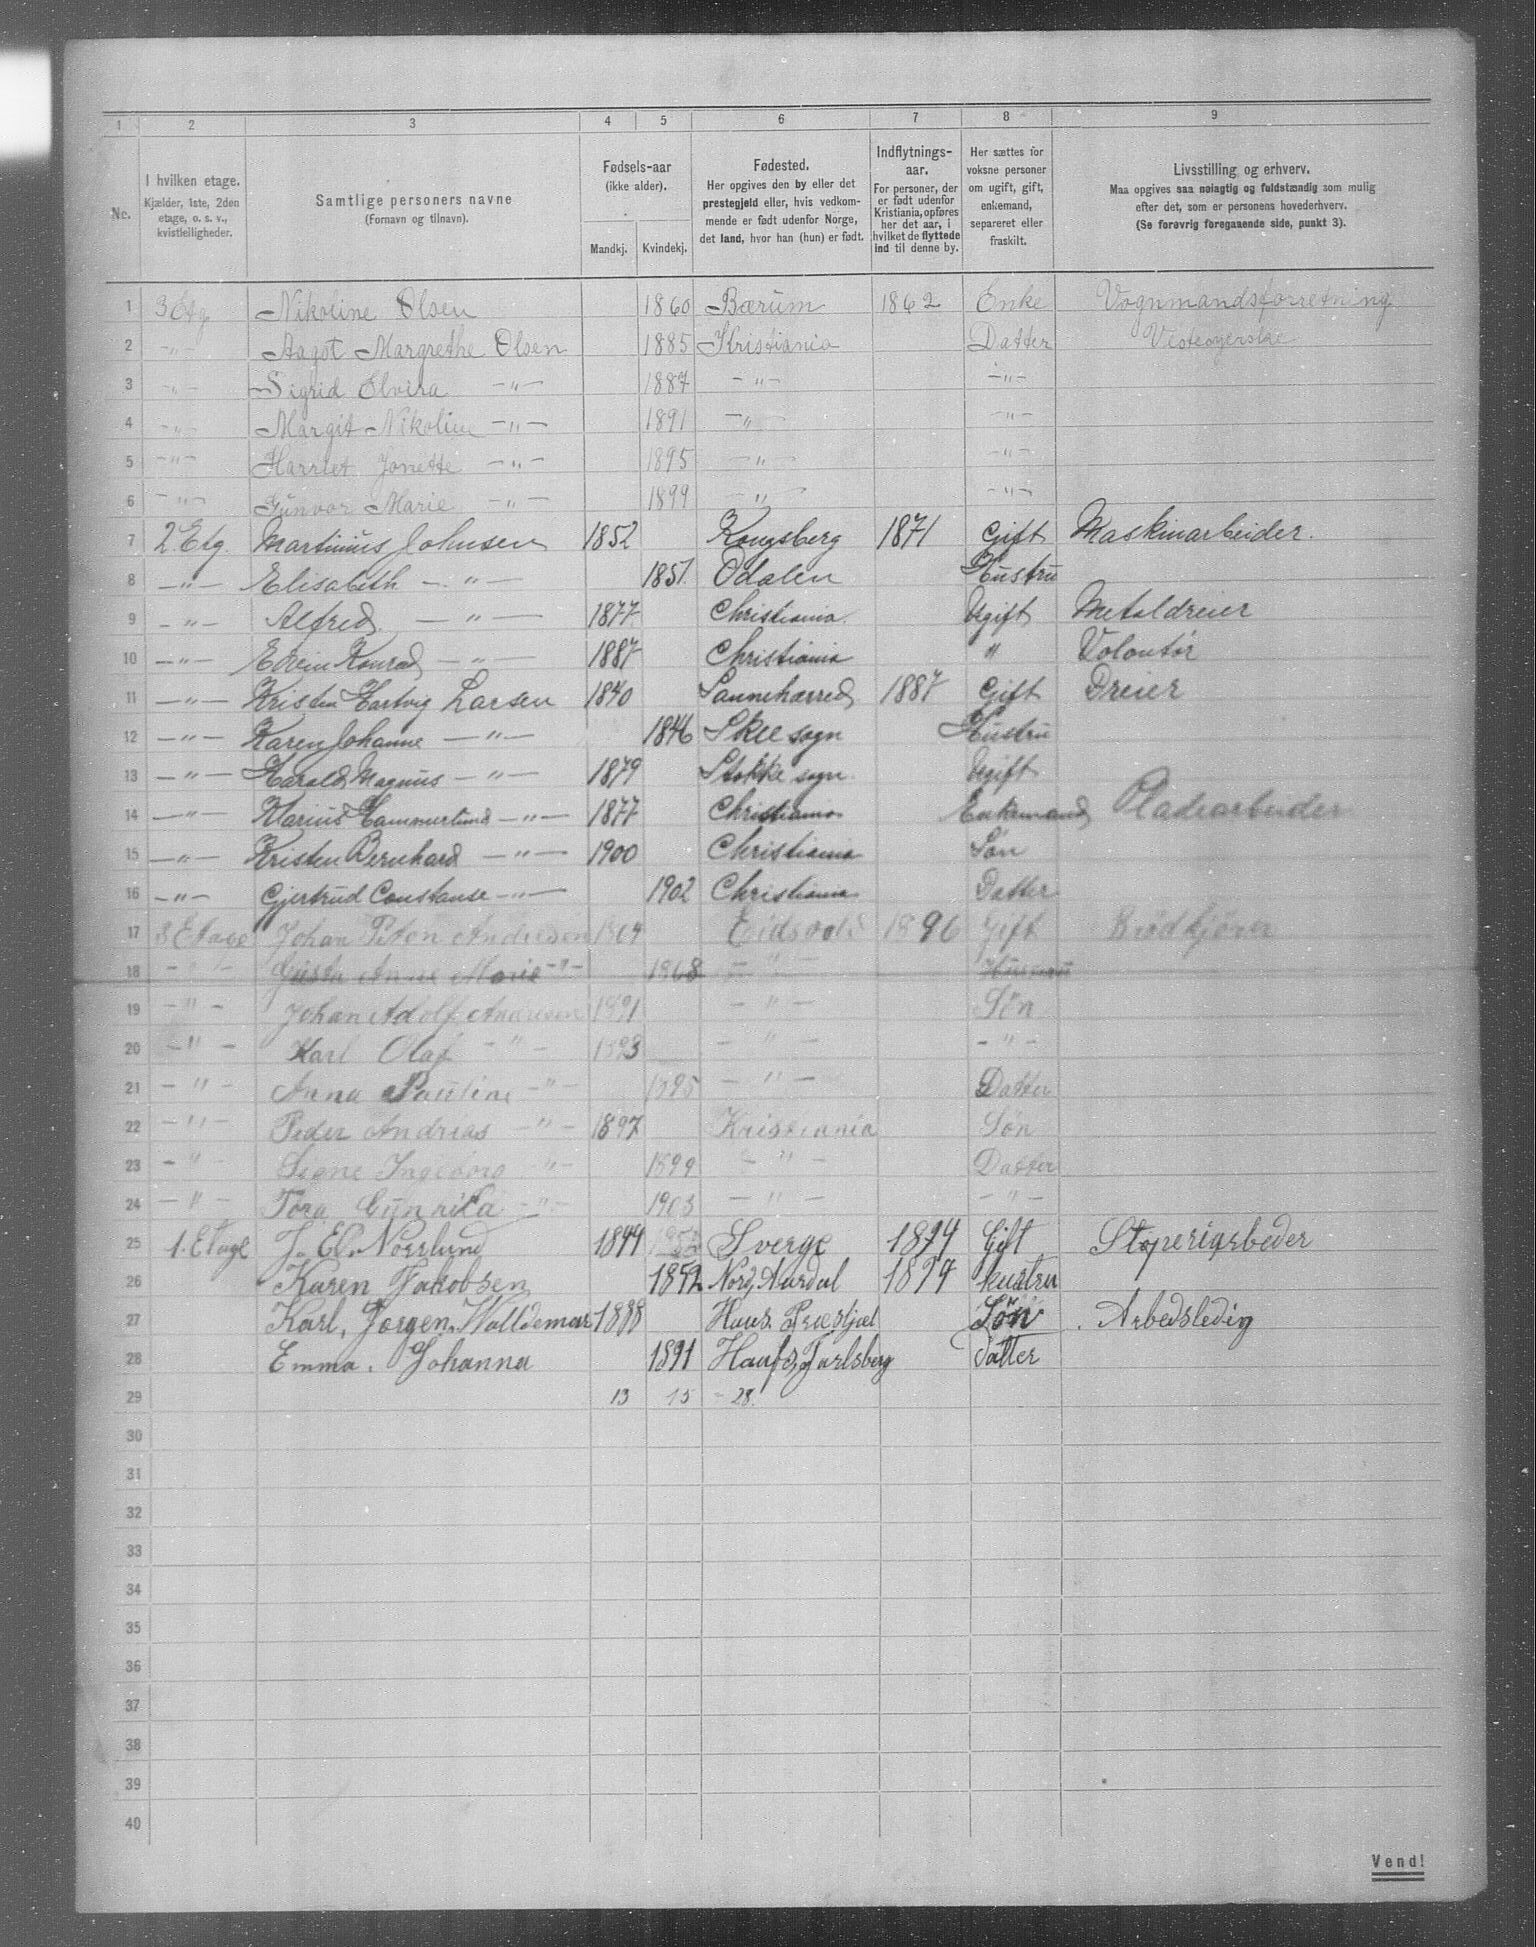 1 2 3 4 5 6 7 8 9
No. | I hvilken etage. Kjælder, 1ste, 2den etage, o. s. v., kvistleiligheder. | Samtlige personers navne (Fornavn og tilnavn). | Fødsels-aar (ikke alder). Mandkj. Kvindekj. | Fødested. Her opgives den by eller det prestegjeld eller, hvis vedkommende er født udenfor Norge, det land, hvor han (hun) er født. | Indflytnings-aar. For personer, der er født udenfor Kristiania, opføres her det aar, i hvilket de flyttede ind til denne by. | Her sættes for voksne personer om ugift, gift, enkemand, separeret eller fraskilt. | Livsstilling og erhverv. Maa opgives saa nøiagtig og fuldstændig som mulig efter det, som er personens hovederhverv. (Se forøvrig foregaaende side, punkt 3).
1 3 Etg Nikoline Olsen 1860 Bærum 1862 Enke Vognmandsforretning
2 -"- Aagot Margrethe Olsen 1885 Kristiania Datter
3 -"- Sigrid Elvira -"- 1887 -"- -"-
4 -"- Margit Nikoline -"- 1891 -"- -"-
5 -"- Harriet Jonette -"- 1895 -"- -"-
6 -"- Gunvor Marie -"- 1899 -"- -"-
7 2 Etg. Martinius Johnsen 1852 Kongsberg 1871 Gift Maskinarbeider.
8 -"- Elisabeth -"- 1851 Odalen Hustru
9 -"- Alfred -"- 1877 Christiania Ugift Metaldreier
10 -"- Edvin Konrad -"- 1887 Christiania " Volontør
11 -"- Kristen Hartvig Larsen 1840 Sanneherred 1887 Gift Dreier
12 -"- Karen Johanne -"- 1846 Skee sogn Hustru
13 -"- Harald Magnus -"- 1879 Stokke sogn Ugift
14 -"- Marius Hammerlund -"- 1877 Christiania Enkemand Pladearbeider
15 -"- Kristen Bernhard -"- 1900 Christiania Søn
16 -"- Gjertrud Constanse -"- 1902 Christiania Datter
17 3 Etage Johan Peter Andresen Eidsvold 1896 Gift Brødkjører
18 -"- Anne Marie -"- 1868 -"-
19 -"- Johan Adolf Andresen 1891 -"- Søn
20 -"- Karl Olaf -"- 1893 -"- -"-
21 -"- Anna Pauline -"- 1895 -"- Datter
22 -"- Peder Andrias -"- 1897 Kristiania Søn
23 -"- Signe Ingeborg -"- 1899 -"- Datter
24 -"- Tora -"- 1903 -"- -"-
25 1. Etage J. El. Norrlund 1844 Sverge 1874 Gift Støperiarbeder
26 Karen Jakobsen 1852 Nord, Aurdal 1874 hustru
27 Karl, Jørgen, Walldemar 1888 Søn Arbedsledig
28 Emma, Johanna 1891 Jarlsberg Datter
29 13 15 - 28.
30
31
32
33
34
35
36
37
38
39
40
Vend!